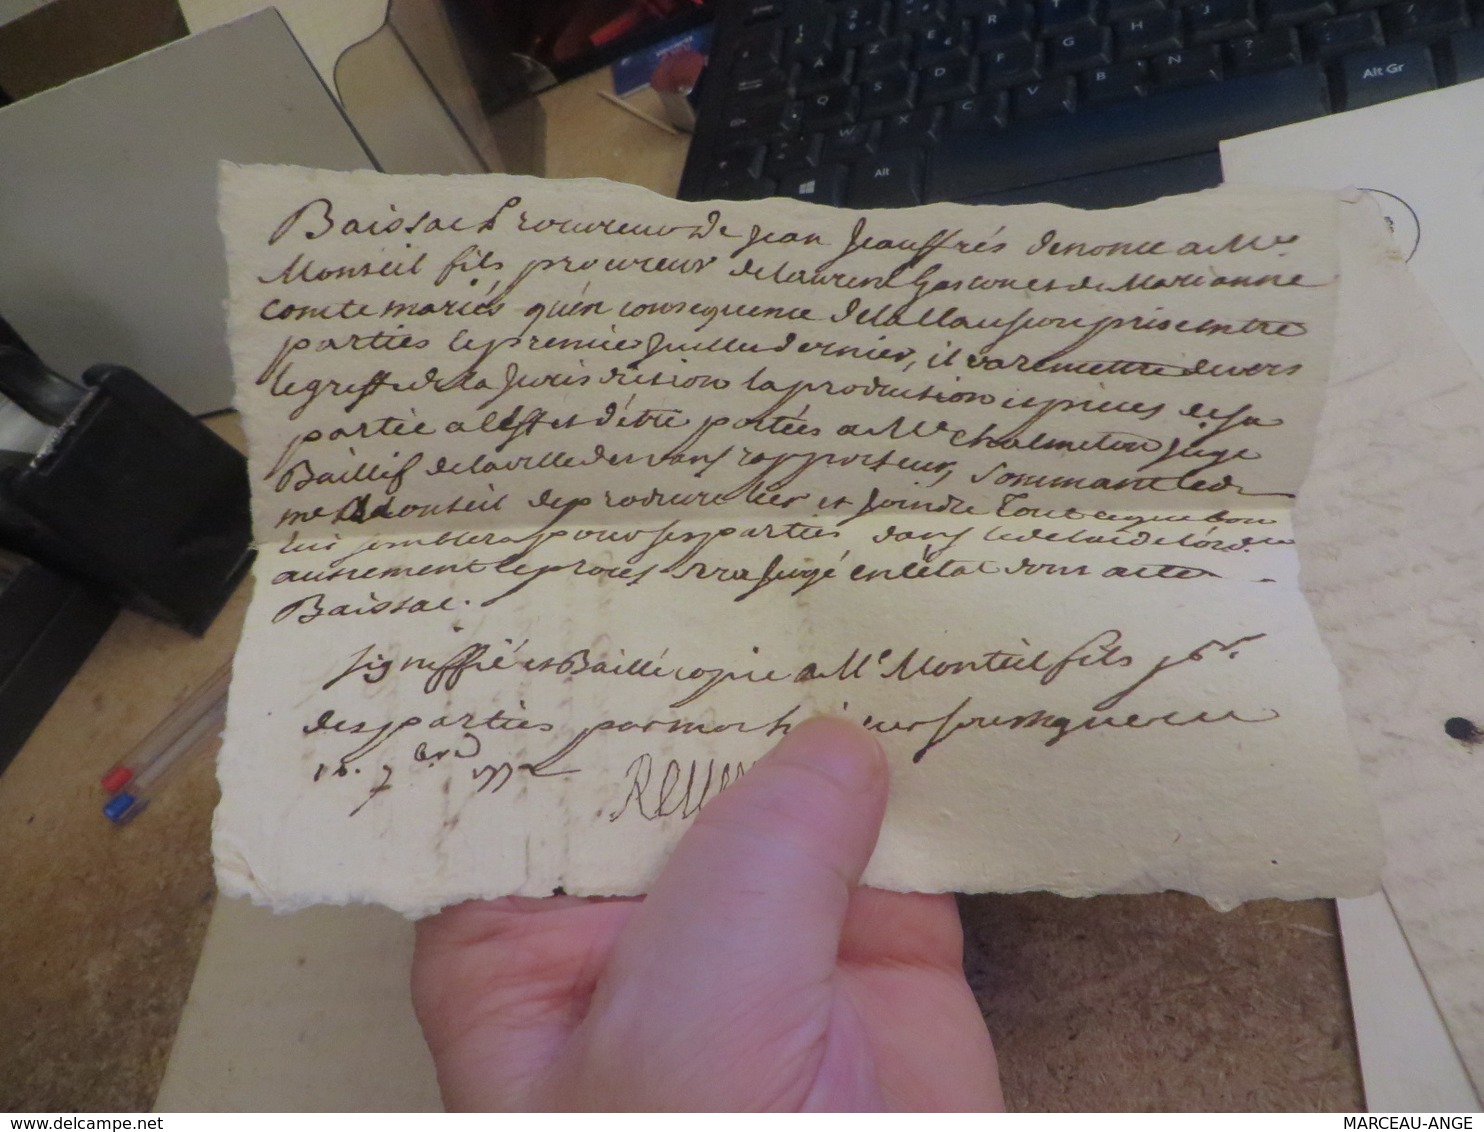 Baissac Procureur de Jean Jeauffrés denonce a Me.
Monteil fils procureur de Laurent Gascon et de Marianne
Comte mariés qu'en consequence de la Clausion prise entre
parties le premier Juillet dernier, il va remettre devers
le greffe de la Jurisdition la production et pieces de sa
partie a l'effet d'être portées a Me Chalmeton juge
Baillif de la ville de vans rapporteur, Sommant led.
me Monteil de produire bien et joindre Tout ce que bon
lui semblera pour ses parties dans le delai de l'ord.ce
autrement le procés sera jugé en l'état dont acte
Baissac.
signiffié et Baillé copie a Me Monteil fils pr.
des parties par moi soussigné ce
7bre 177
Alt Gr
Alt
MARCEAU-ANGE
delcampe.net